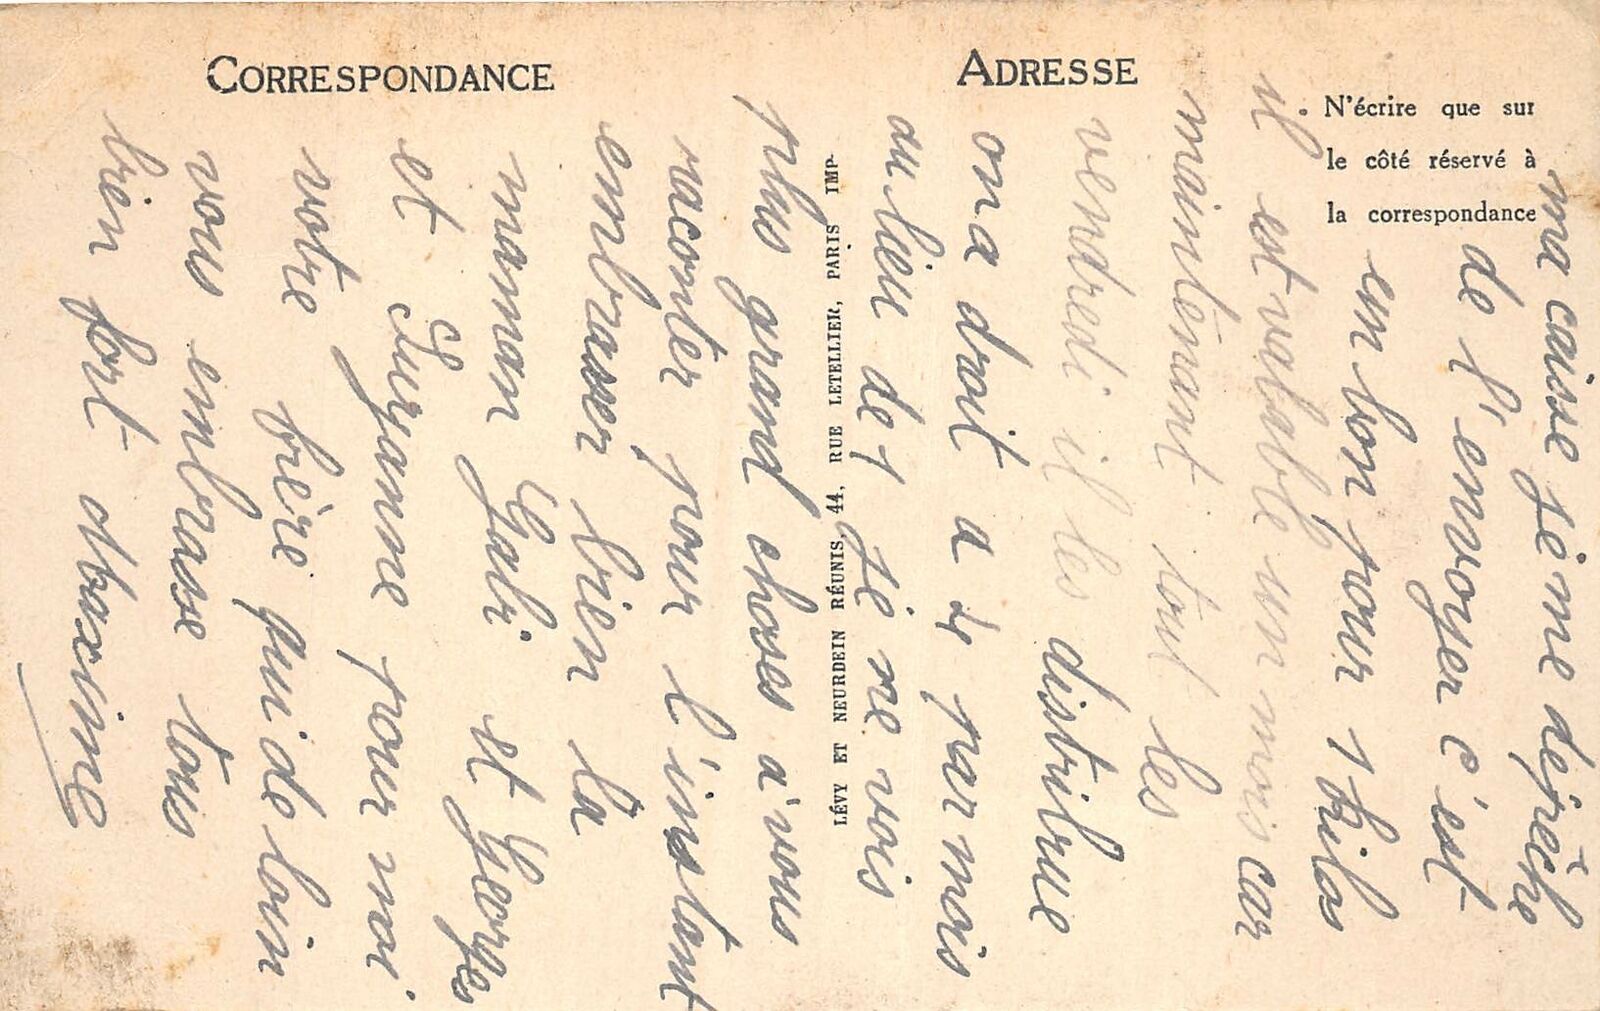 CORRESPONDANCE
ADRESSE
N'écrire que sur
le côté réservé à
la correspondance
LÉVY ET NEURDEIN RÉUNIS, 44, RUE LETELLIER, PARIS IMP.
ma caisse je me dépêche
de l'envoyer c'est
en bon pour 1 kilos
il est valable un mois car
maintenant tout les
vendredi il les distribue
on a droit a 4 par mois
au lieu de 1 je ne vois
plus grand choses a vous
raconter pour l'instant
embrasser bien la
maman Gabi et Georges
et Suzanne pour moi
votre frère qui de loin
vous embrasse tous
bien fort Maxime